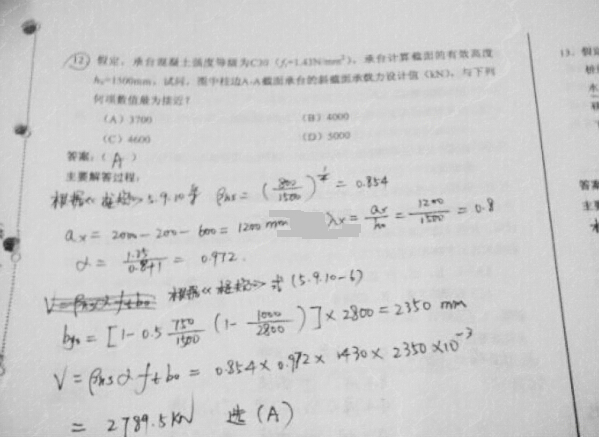 12 假定，承台混凝土强度等级为C30（ft=1.43N/mm²），承台计算截面的有效高度
h0=1500mm，试问，图中柱边A-A截面承台的斜截面承载力设计值（kN），与下列
何项数值最为接近？
（A）3700 （B）4000
（C）4600 （D）5000
答案：（A）
主要解答过程：
根据《桩规》5.9.10条 βhs = (800/1500)^¼ = 0.854
ax = 2000 - 200 - 600 = 1200 mm λx = ax/h0 = 1200/1500 = 0.8
α = 1.75/0.8+1 = 0.972.
V = βhs α ft b0 根据《桩规》式 (5.9.10-6)
by0 = [1 - 0.5 750/1500 (1 - 1000/2800)] × 2800 = 2350 mm
V = βhs α ft b0 = 0.854 × 0.972 × 1430 × 2350 × 10⁻³
= 2789.5kN 选 (A)
13. 假定
桩
水
答案
主要